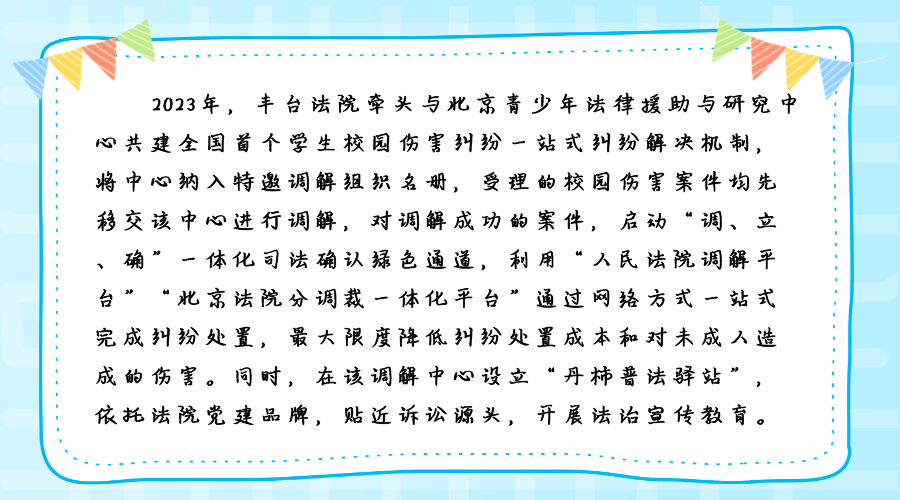 2023年，丰台法院牵头与北京青少年法律援助与研究中
心共建全国首个学生校园伤害纠纷一站式纠纷解决机制，
将中心纳入特邀调解组织名册，受理的校园伤害案件均先
移交该中心进行调解，对调解成功的案件，启动“调、立
、确”一体化司法确认绿色通道，利用“人民法院调解平
台”“北京法院分调裁一体化平台”通过网络方式一站式
完成纠纷处置，最大限度降低纠纷处置成本和对未成人造
成的伤害。同时，在该调解中心设立“丹柿普法驿站”，
依托法院党建品牌，贴近诉讼源头，开展法治宣传教育。